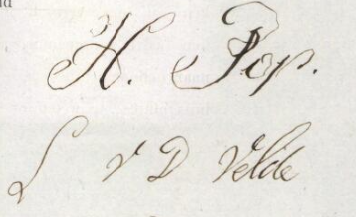 H. Pop.
L v D Velde